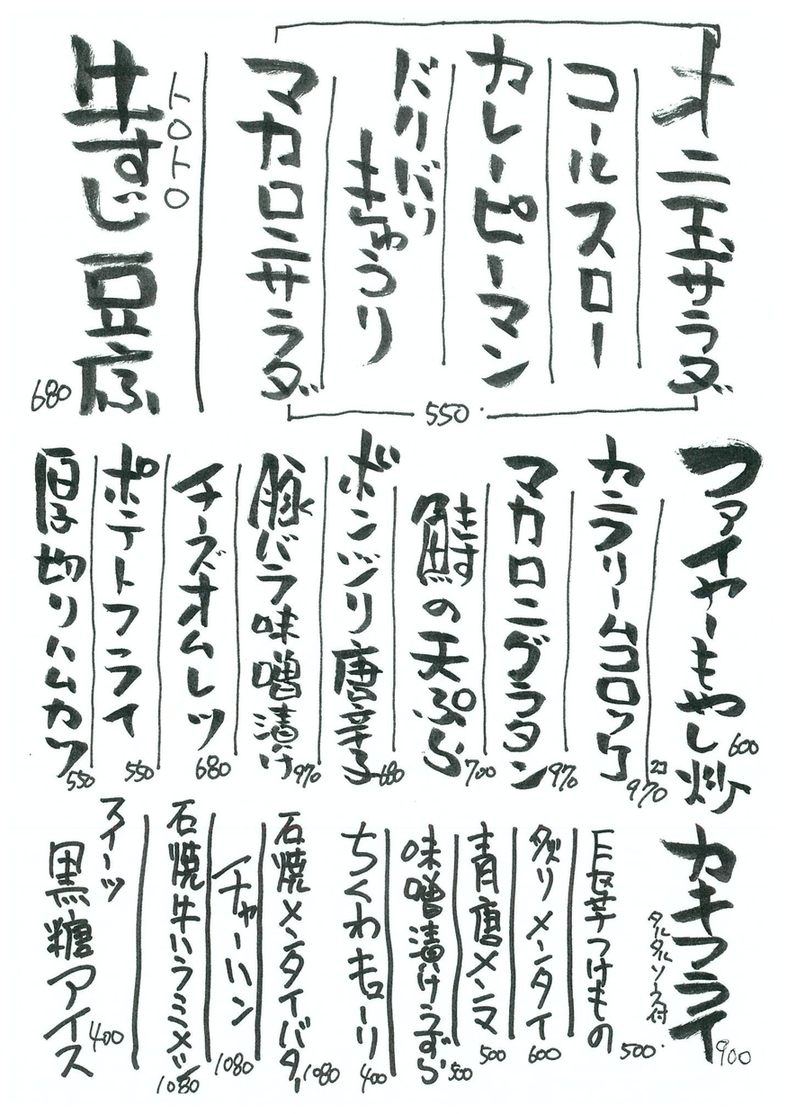 オニ玉サラダ
コールスロー
カレーピーマン
バリバリ
きゅうり
マカロニサラダ
550
トロトロ
牛すじ豆ふ
680
ファイヤーもやし炒
600
カニクリームコロッケ
2コ
970
マカロニグラタン
970
鮭の天ぷら
700
ボンジリ唐辛子
680
豚バラ味噌漬け
970
チーズオムレツ
680
ポテトフライ
550
厚切りハムカツ
550
カキフライ
タルタルソース付
900
つけもの
500
メンタイ
600
青唐メンマ
500
味噌漬けうずら
500
ちくわキューリ
400
石焼メンタイバター
1080
チャーハン
1080
石焼牛ハラミメシ
1080
スイーツ
黒糖アイス
400